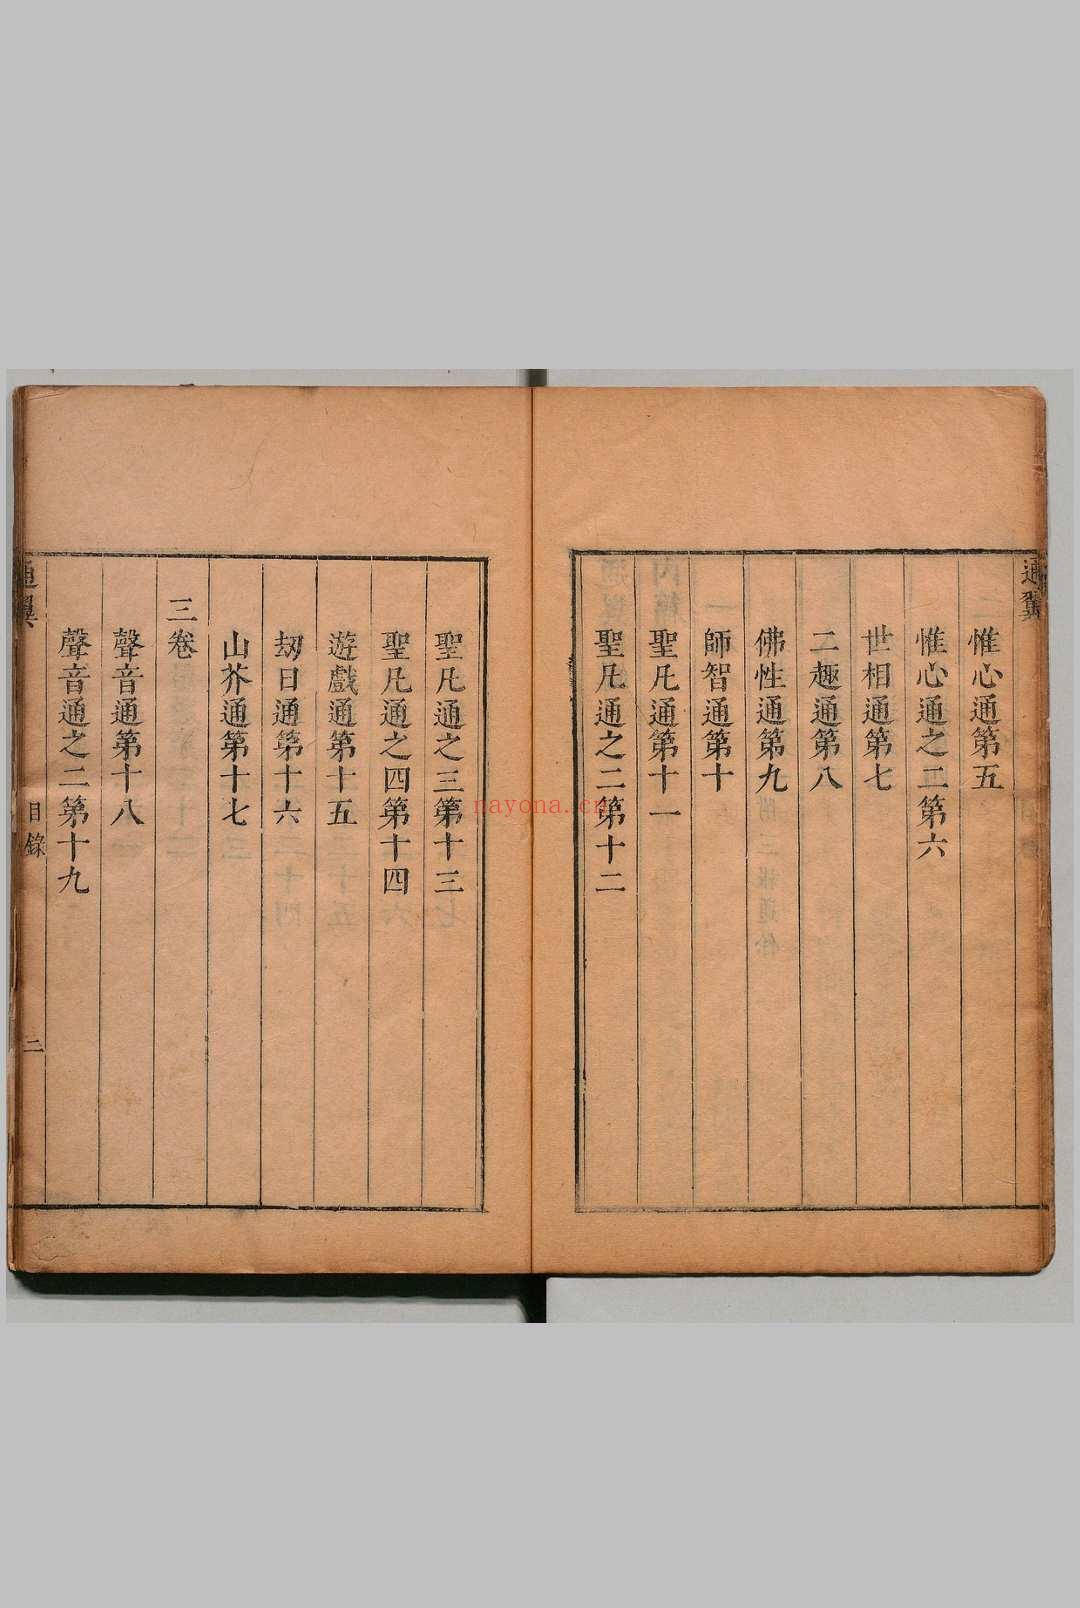 通翼
惟心通第五
惟心通之二第六
世相通第七
二趣通第八
佛性通第九
師智通第十
聖凡通第十一
聖凡通之二第十二
聖凡通之三第十三
聖凡通之四第十四
遊戲通第十五
劫日通第十六
山芥通第十七
三卷
聲音通第十八
聲音通之二第十九
通翼
目錄
二
nayona.cn